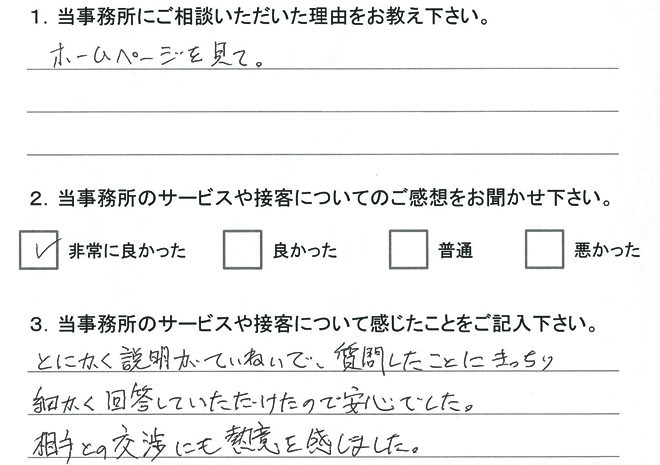 1. 当事務所にご相談いただいた理由をお教え下さい。
ホームページを見て。
2. 当事務所のサービスや接客についてのご感想をお聞かせ下さい。
非常に良かった 良かった 普通 悪かった
3. 当事務所のサービスや接客について感じたことをご記入下さい。
とにかく説明がていねいで、質問したことにきっちり
細かく回答していただけたので安心でした。
相手との交渉にも熱意を感じました。